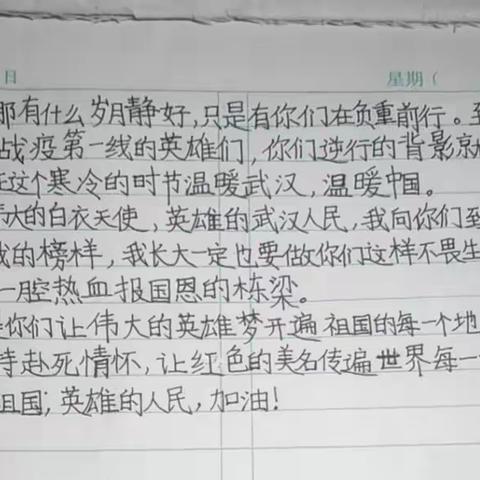 日 星期（
那有什么岁月静好,只是有你们在负重前行。至
战疫第一线的英雄们,你们逆行的背影就
这个寒冷的时节温暖武汉,温暖中国。
大的白衣天使,英雄的武汉人民,我向你们致
我的榜样,我长大一定也要做你们这样不畏生
一腔热血报国恩的栋梁。
你们让伟大的英雄梦开遍祖国的每一个地
持赴死情怀,让红色的美名传遍世界每一
祖国;英雄的人民,加油!